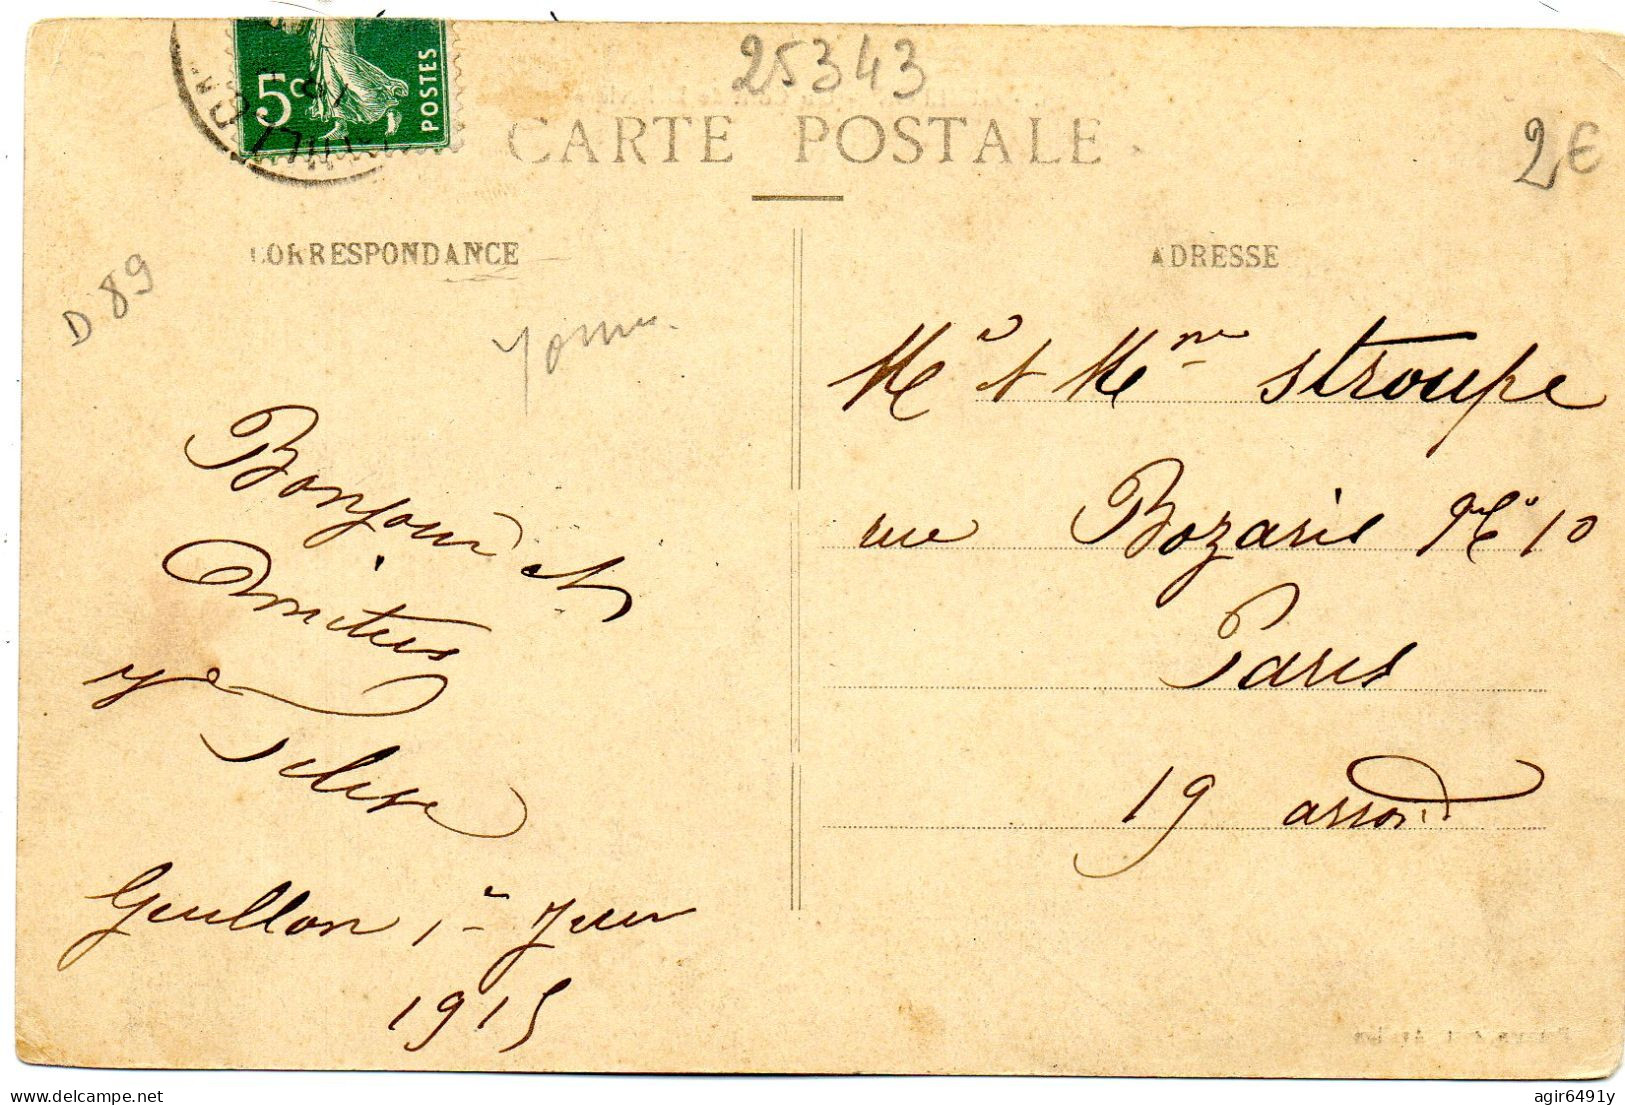 5c
POSTES
25343
CARTE POSTALE
2€
CORRESPONDANCE
ADRESSE
D 89
Yonne
Bonjour et
Amitiés
Guillon 1er Juin
1915
Mr et Mme Stroupe
rue Bozaris No 10
Paris
19 arrond
delcampe.net
agir6491y